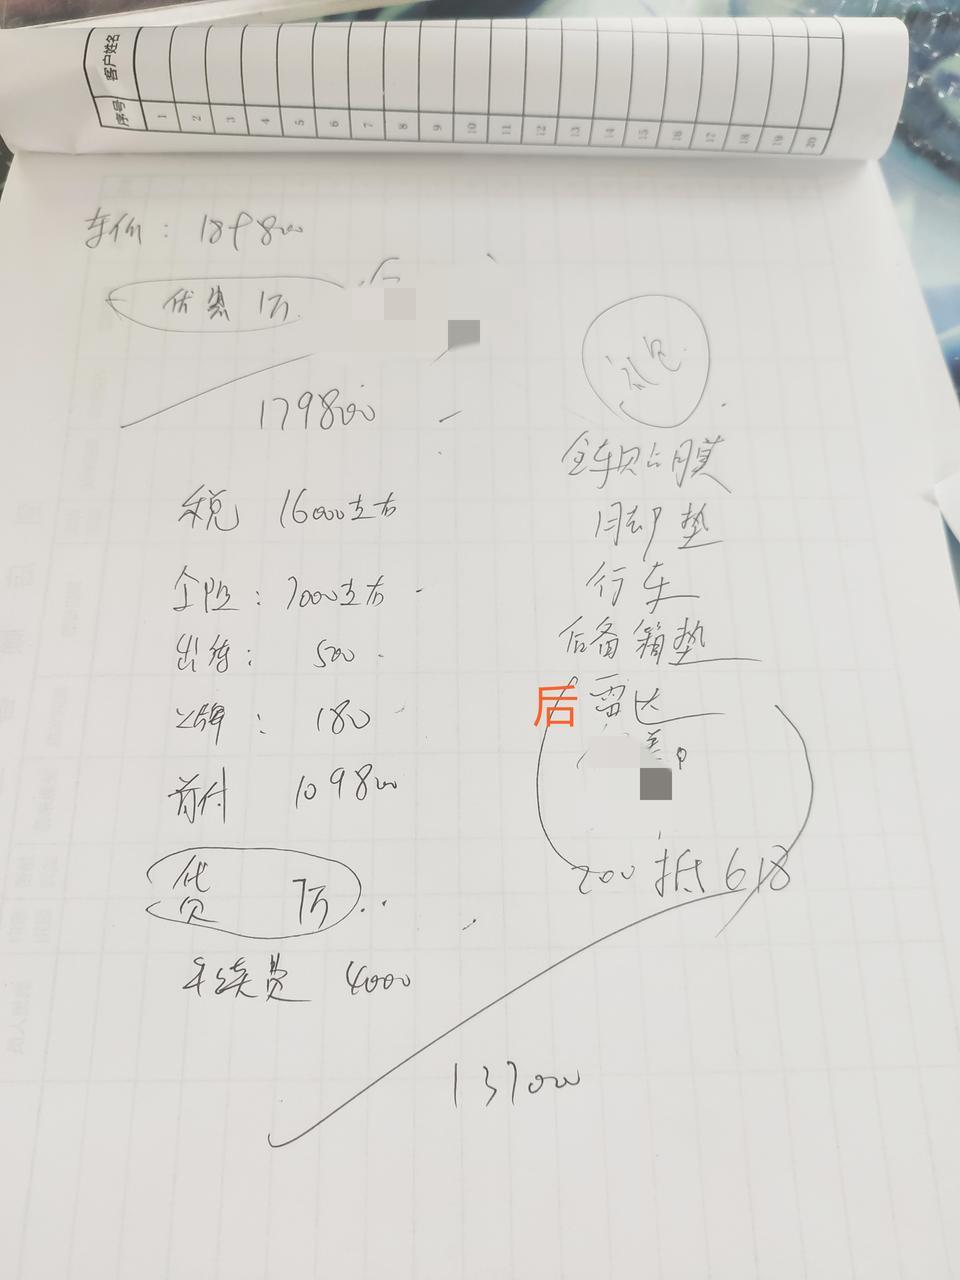 客户姓名
序号 1 2 3 4 5 6 7 8 9 10 11 12 13 14 15 16 17 18 19 20
车价：189800
优惠 1万
179800
税 16000左右
全险：7000左右
出库：500
上牌：180
首付 109800
贷 7万
手续费 4000
礼包
全车贴膜
脚垫
行车
后备箱垫
后雷达
200抵618
137000